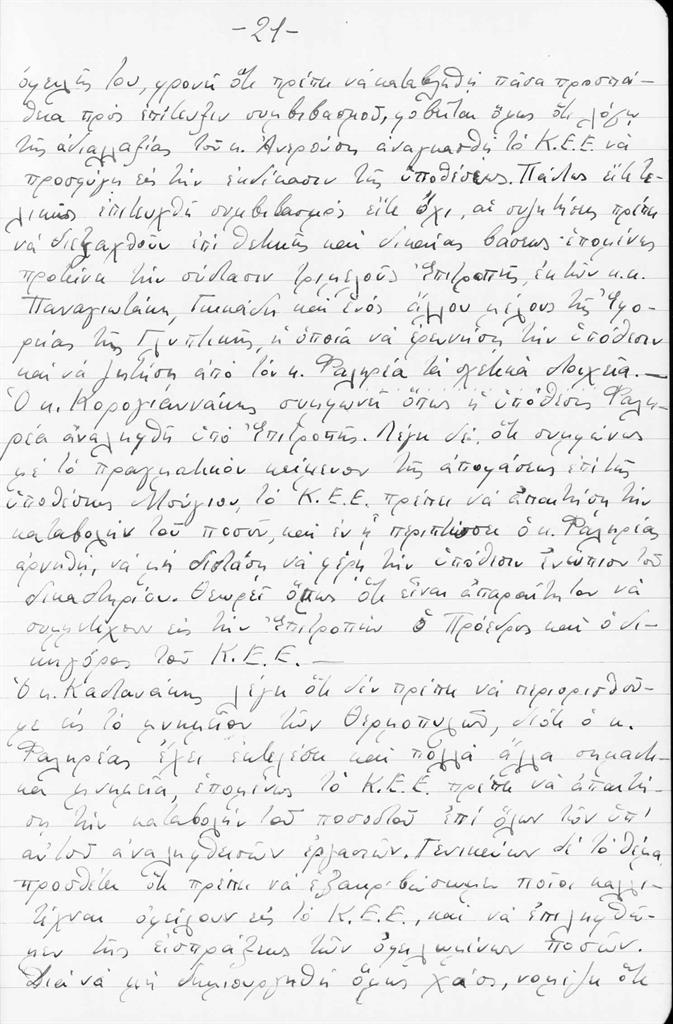 -21-
ὀφειλῆς του, φρονεῖ ὅτι πρέπει νά καταβληθῇ πᾶσα προσπά-
θεια πρός ἐπίτευξιν συμβιβασμοῦ, φοβεῖται ὅμως ὅτι λόγῳ
τῆς ἀδιαλλαξίας τοῦ κ. ἀναγκασθῇ τό Κ.Ε.Ε. νά
προσφύγῃ εἰς τήν ἐκδίκασιν τῆς ὑποθέσεως. Πάντως εἴτε τε-
λικῶς ἐπιτευχθῇ συμβιβασμός εἴτε ὄχι, αἱ συζητήσεις πρέπει
νά διεξαχθοῦν ἐπί θετικῆς καί δικαίας βάσεως· ἑπομένως
προτείνει τήν σύστασιν τριμελοῦς Ἐπιτροπῆς, ἐκ τῶν κ.κ.
Παναγιωτάκη, καί ἑνός ἄλλου μέλους τῆς Ἐφο-
ρείας τῆς Γλυπτικῆς, ἡ ὁποία νά ἐρευνήσῃ τήν ὑπόθεσιν
καί νά ζητήσῃ ἀπό τόν κ. Φαληρέα τά σχετικά στοιχεῖα.—
Ὁ κ. Κορογιαννάκης συμφωνεῖ ὅπως ἡ ὑπόθεσις Φαλη-
ρέα ἀναληφθῇ ὑπό Ἐπιτροπῆς. Λέγει δέ, ὅτι συμφώνως
μέ τό πραγματικόν κείμενον τῆς ἀποφάσεως ἐπί τῆς
ὑποθέσεως τό Κ.Ε.Ε. πρέπει νά ἀπαιτήσῃ τήν
καταβολήν τοῦ ποσοῦ, καί ἐν ᾗ περιπτώσει ὁ κ. Φαληρέας
ἀρνηθῇ, νά μή διστάσῃ νά φέρῃ τήν ὑπόθεσιν ἐνώπιον τοῦ
δικαστηρίου. Θεωρεῖ ὅμως ὅτι εἶναι ἀπαραίτητον νά
συμμετάσχουν εἰς τήν Ἐπιτροπήν ὁ Πρόεδρος καί ὁ δι-
κηγόρος τοῦ Κ.Ε.Ε.—
Ὁ κ. Καστανάκης λέγει ὅτι δέν πρέπει νά περιορισθοῦ-
με εἰς τό μνημεῖον τῶν Θερμοπυλῶν, διότι ὁ κ.
Φαληρέας ἔχει ἐκτελέσει καί πολλά ἄλλα σημαντι-
κά μνημεῖα, ἑπομένως τό Κ.Ε.Ε. πρέπει νά ἀπαιτή-
σῃ τήν καταβολήν τοῦ ποσοστοῦ ἐπί ὅλων τῶν ὑπ'
αὐτοῦ ἀναληφθεισῶν ἐργασιῶν. Γενικεύων δέ τό θέμα
προσθέτει ὅτι πρέπει νά ἐξακριβώσωμεν ποῖοι καλλι-
τέχναι ὀφείλουν εἰς τό Κ.Ε.Ε., καί νά ἐπιληφθῶ-
μεν τῆς εἰσπράξεως τῶν ὀφειλομένων ποσῶν.
Διά νά μή δημιουργηθῇ ὅμως χάος, νομίζει ὅτι